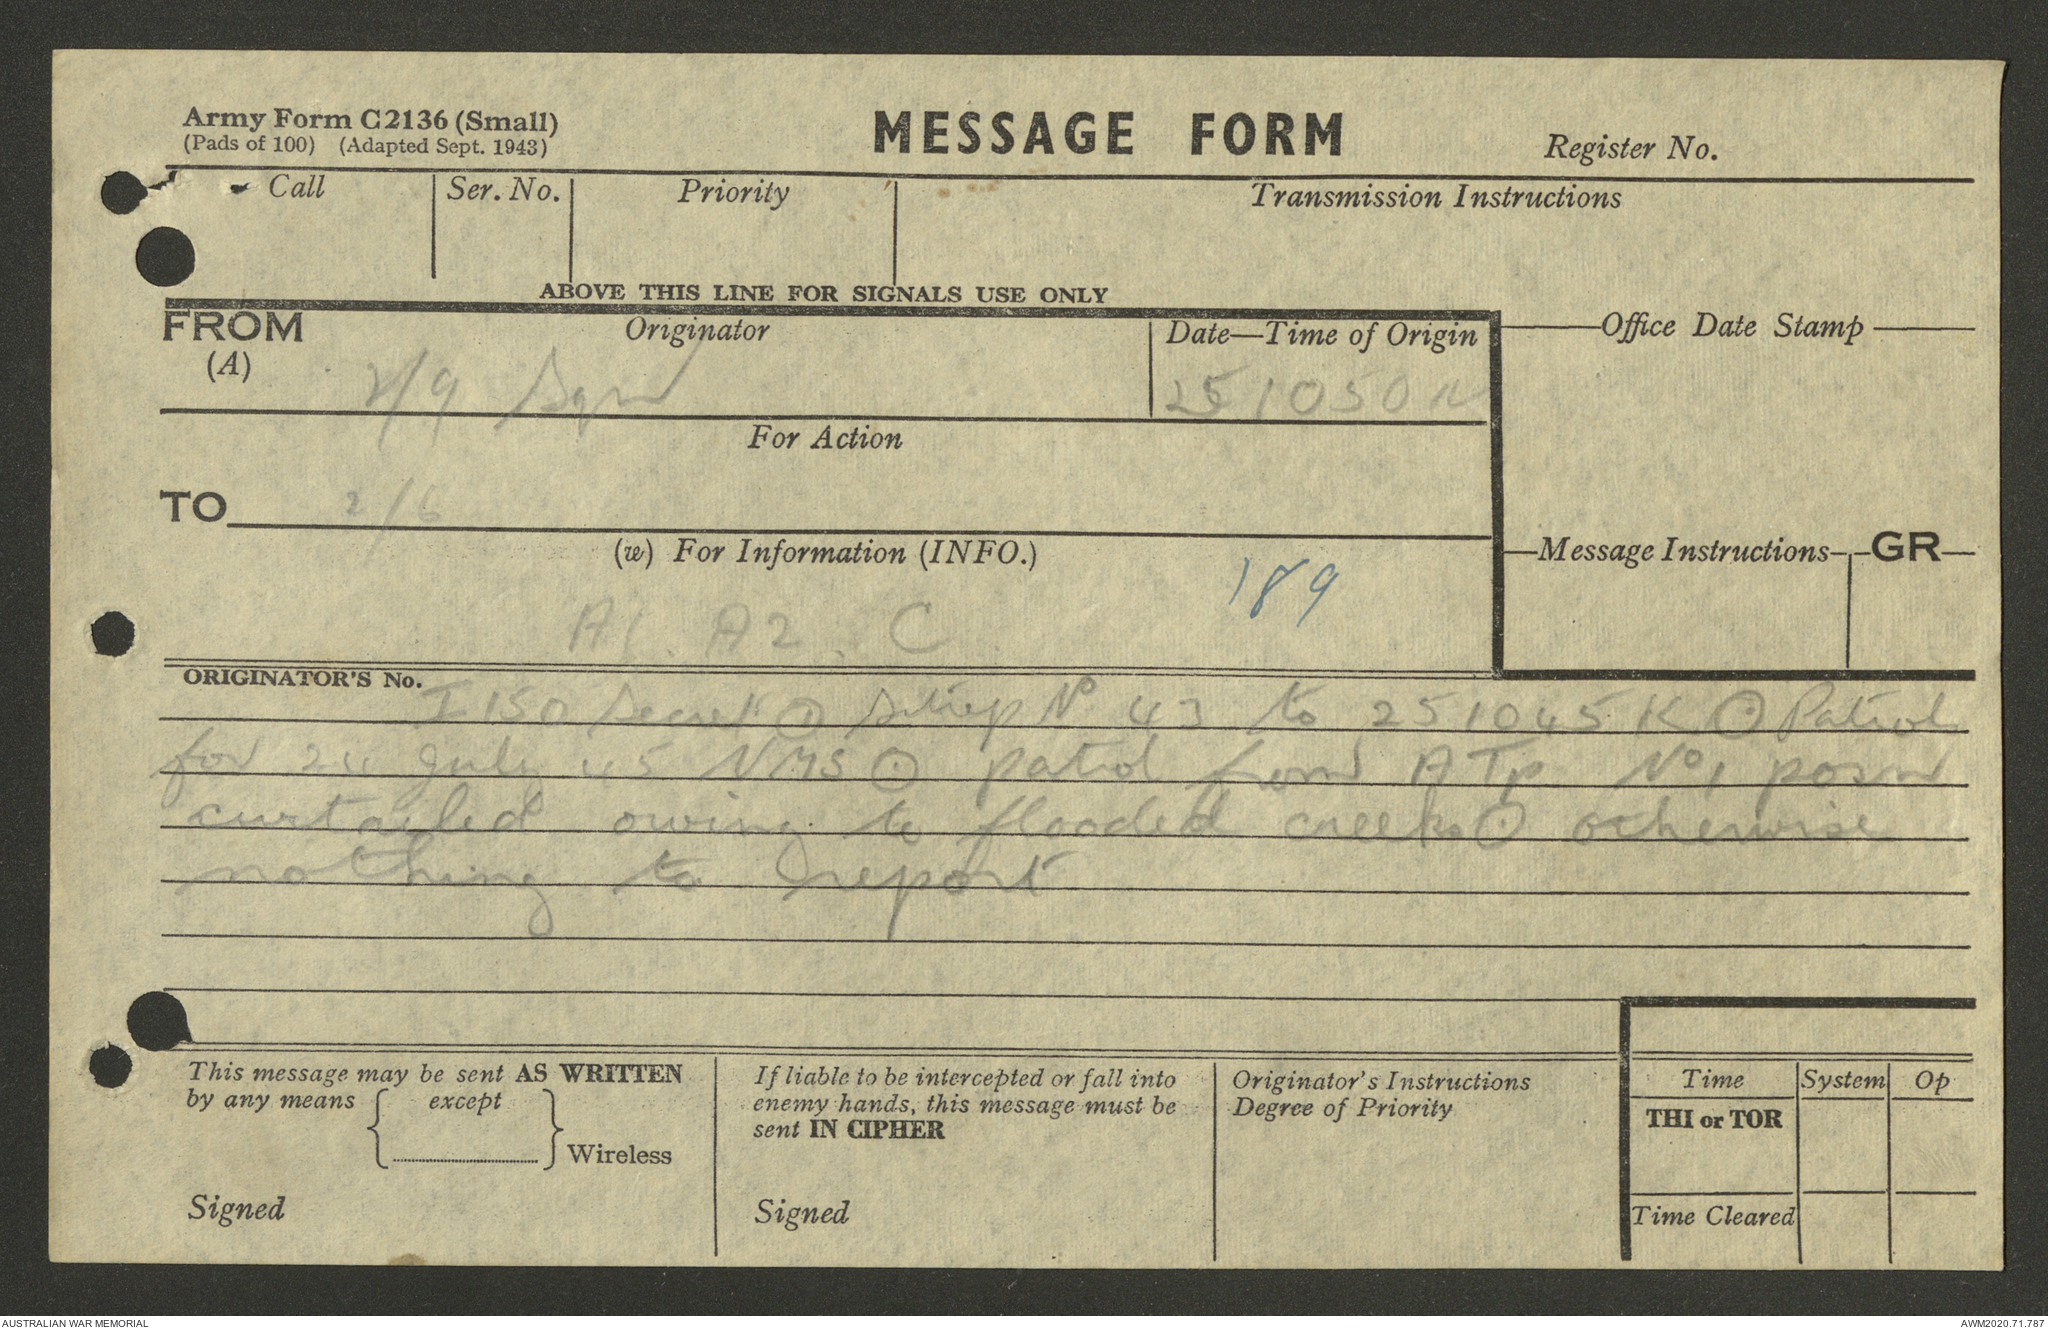 Army Form C2136 (Small)
(Pads of 100) (Adapted Sept. 1943)
MESSAGE FORM
Register No.
Call Ser. No. Priority Transmission Instructions
ABOVE THIS LINE FOR SIGNALS USE ONLY
FROM (A)
Originator
2/9 Sqn
Date—Time of Origin
251050K
Office Date Stamp
For Action
TO 2/6
(w) For Information (INFO.)
Message Instructions GR
189
A1. A2. C
ORIGINATOR'S No.
I 150 Secret ⊙ Sitrep No 43 to 251045K ⊙ Patrol
for 24 July 45 NMS ⊙ patrol from A Tp No 1 posn
curtailed owing to flooded creeks ⊙ otherwise
nothing to report
This message may be sent AS WRITTEN
by any means except
Wireless
Signed
If liable to be intercepted or fall into
enemy hands, this message must be
sent IN CIPHER
Signed
Originator's Instructions
Degree of Priority
Time System Op
THI or TOR
Time Cleared
AUSTRALIAN WAR MEMORIAL
AWM2020.71.787